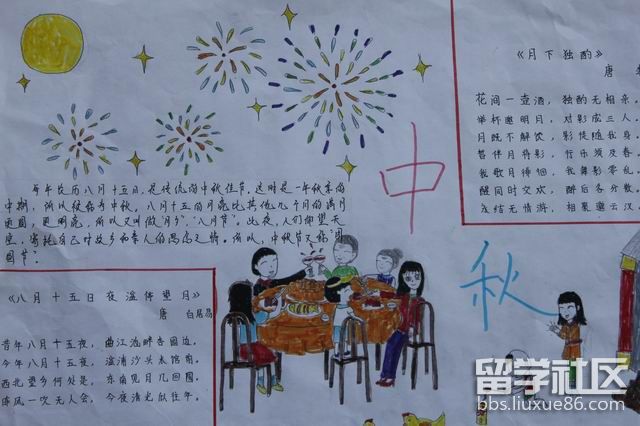 《月下独酌》
唐
花间一壶酒，独酌无相亲
举杯邀明月，对影成三人。
月既不解饮，影徒随我身
暂伴月将影，行乐须及春
我歌月徘徊，我舞影零乱
醒同时交欢，醉后各分散
永结无情游，相期邈云汉
中
秋
每年农历八月十五日，是传统的中秋佳节。这时是一年秋季的
中期，所以被称为中秋。八月十五的月亮比其他几个月的满月
更圆，更明亮，所以又叫做"月夕"，"八月节"。此夜，人们仰望天
空，寄托自己对故乡和亲人的思念之情。所以，中秋节又称"团
圆节"。
《八月十五日夜湓停望月》
唐 白居易
昔年八月十五夜，曲江池畔杏园边。
今年八月十五夜，湓浦沙头水馆前。
西北望乡何处是，东南见月几回圆。
昨风一吹无人会，今夜清光似往年。
留学社区
bbs.liuxue86.com